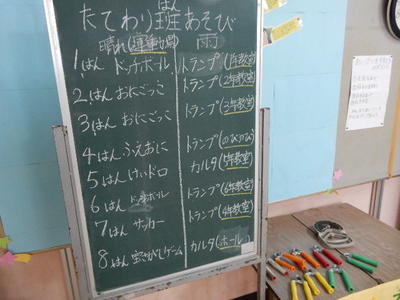 たてわり班あそび
はん
晴れ(運動場) 雨
1はん ドッチボール トランプ(1年教室)
2はん おにごっこ トランプ(2年教室)
3はん おにごっこ トランプ(3年教室)
4はん ふえおに トランプ(のびのび)
5はん けいドロ カルタ(5年教室)
6はん ドッチボール トランプ(6年教室)
7はん サッカー トランプ(4年教室)
8はん 宝さがしゲーム カルタ(ホール)